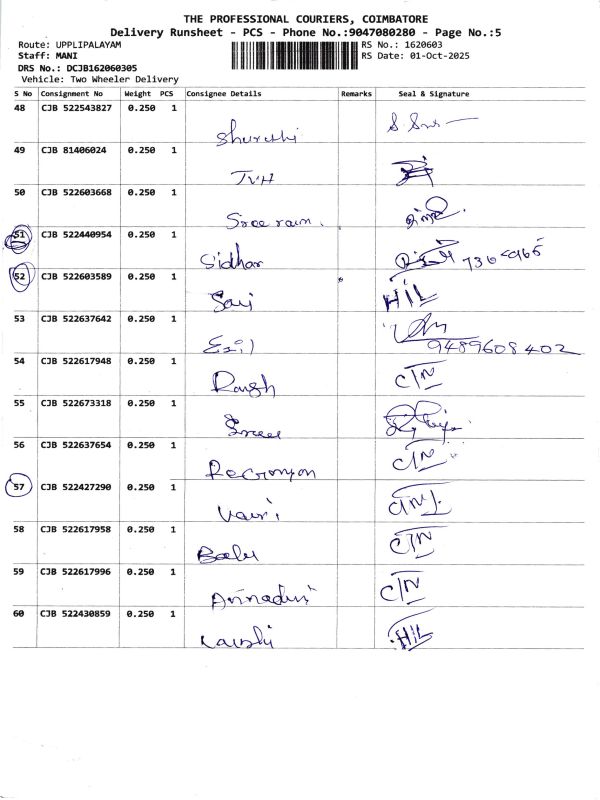 THE PROFESSIONAL COURIERS, COIMBATORE
Delivery Runsheet - PCS - Phone No.:9047080280 - Page No.:5
Route: UPPLIPALAYAM RS No.: 1620603
Staff: MANI RS Date: 01-Oct-2025
DRS No.: DCJB162060305
Vehicle: Two Wheeler Delivery
S No Consignment No Weight PCS Consignee Details Remarks Seal & Signature
48 CJB 522543827 0.250 1
Shuruthi
49 CJB 81406024 0.250 1
TVH
50 CJB 522603668 0.250 1
Sree ram.
51 CJB 522440954 0.250 1
Sidhar
52 CJB 522603589 0.250 1
Sai H/L
53 CJB 522637642 0.250 1
Ezil 9489608402
54 CJB 522617948 0.250 1
C/N
55 CJB 522673318 0.250 1
Sree
56 CJB 522637654 0.250 1
C/N
57 CJB 522427290 0.250 1
58 CJB 522617958 0.250 1
Balu C/N
59 CJB 522617996 0.250 1
C/N
60 CJB 522430859 0.250 1
H/L